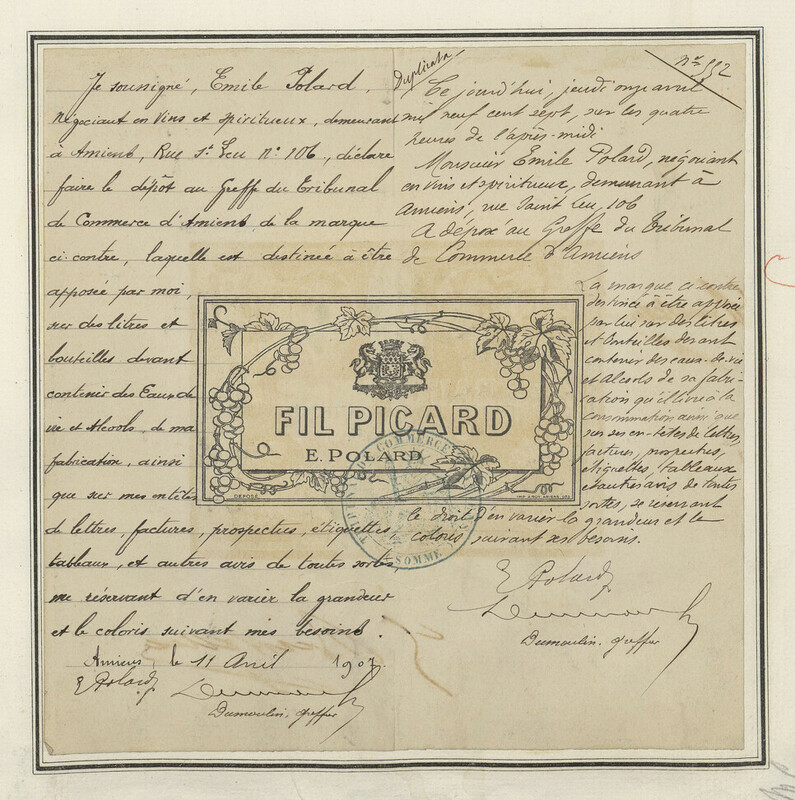 Je soussigné, Emile Polard,
négociant en vins et spiritueux, demeurant
à Amiens, Rue St Leu No 106, déclare
faire le dépôt au Greffe du Tribunal
de Commerce d'Amiens, de la marque
ci-contre, laquelle est destinée à être
apposée par moi,
sur des litres et
bouteilles devant
contenir des Eaux de
vie et Alcools, de ma
fabrication, ainsi
que sur mes entêtes
de lettres, factures, prospectus, etiquettes
tableaux, et autres avis de toutes sortes,
me réservant d'en varier la grandeur
et le coloris suivant mes besoins.
Amiens, le 11 Avril 1907
E Polard
Dumoulin, greffier
Duplicata
No 552
Ce jourd'hui, jeudi onze avril
mil neuf cent sept, sur les quatre
heures de l'après-midi
Monsieur Emile Polard, négociant
en vins et spiritueux, demeurant à
Amiens, rue Saint Leu, 106
A déposé au Greffe du Tribunal
de Commerce d'Amiens
La marque ci-contre
destinée à être apposée
par lui sur des litres
et bouteilles devant
contenir des eaux-de-vie
et Alcools de sa fabri-
cation qu'il livre à la
consommation ainsi que
sur ses en-têtes de lettres,
factures, prospectus,
etiquettes, tableaux
et autres avis de toutes
sortes, se réservant
le droit d'en varier la grandeur et le
coloris suivant ses besoins.
E Polard
Dumoulin, greffier
FIL PICARD
E. POLARD
DÉPOSÉ
TRIBUNAL DE COMMERCE
SOMME